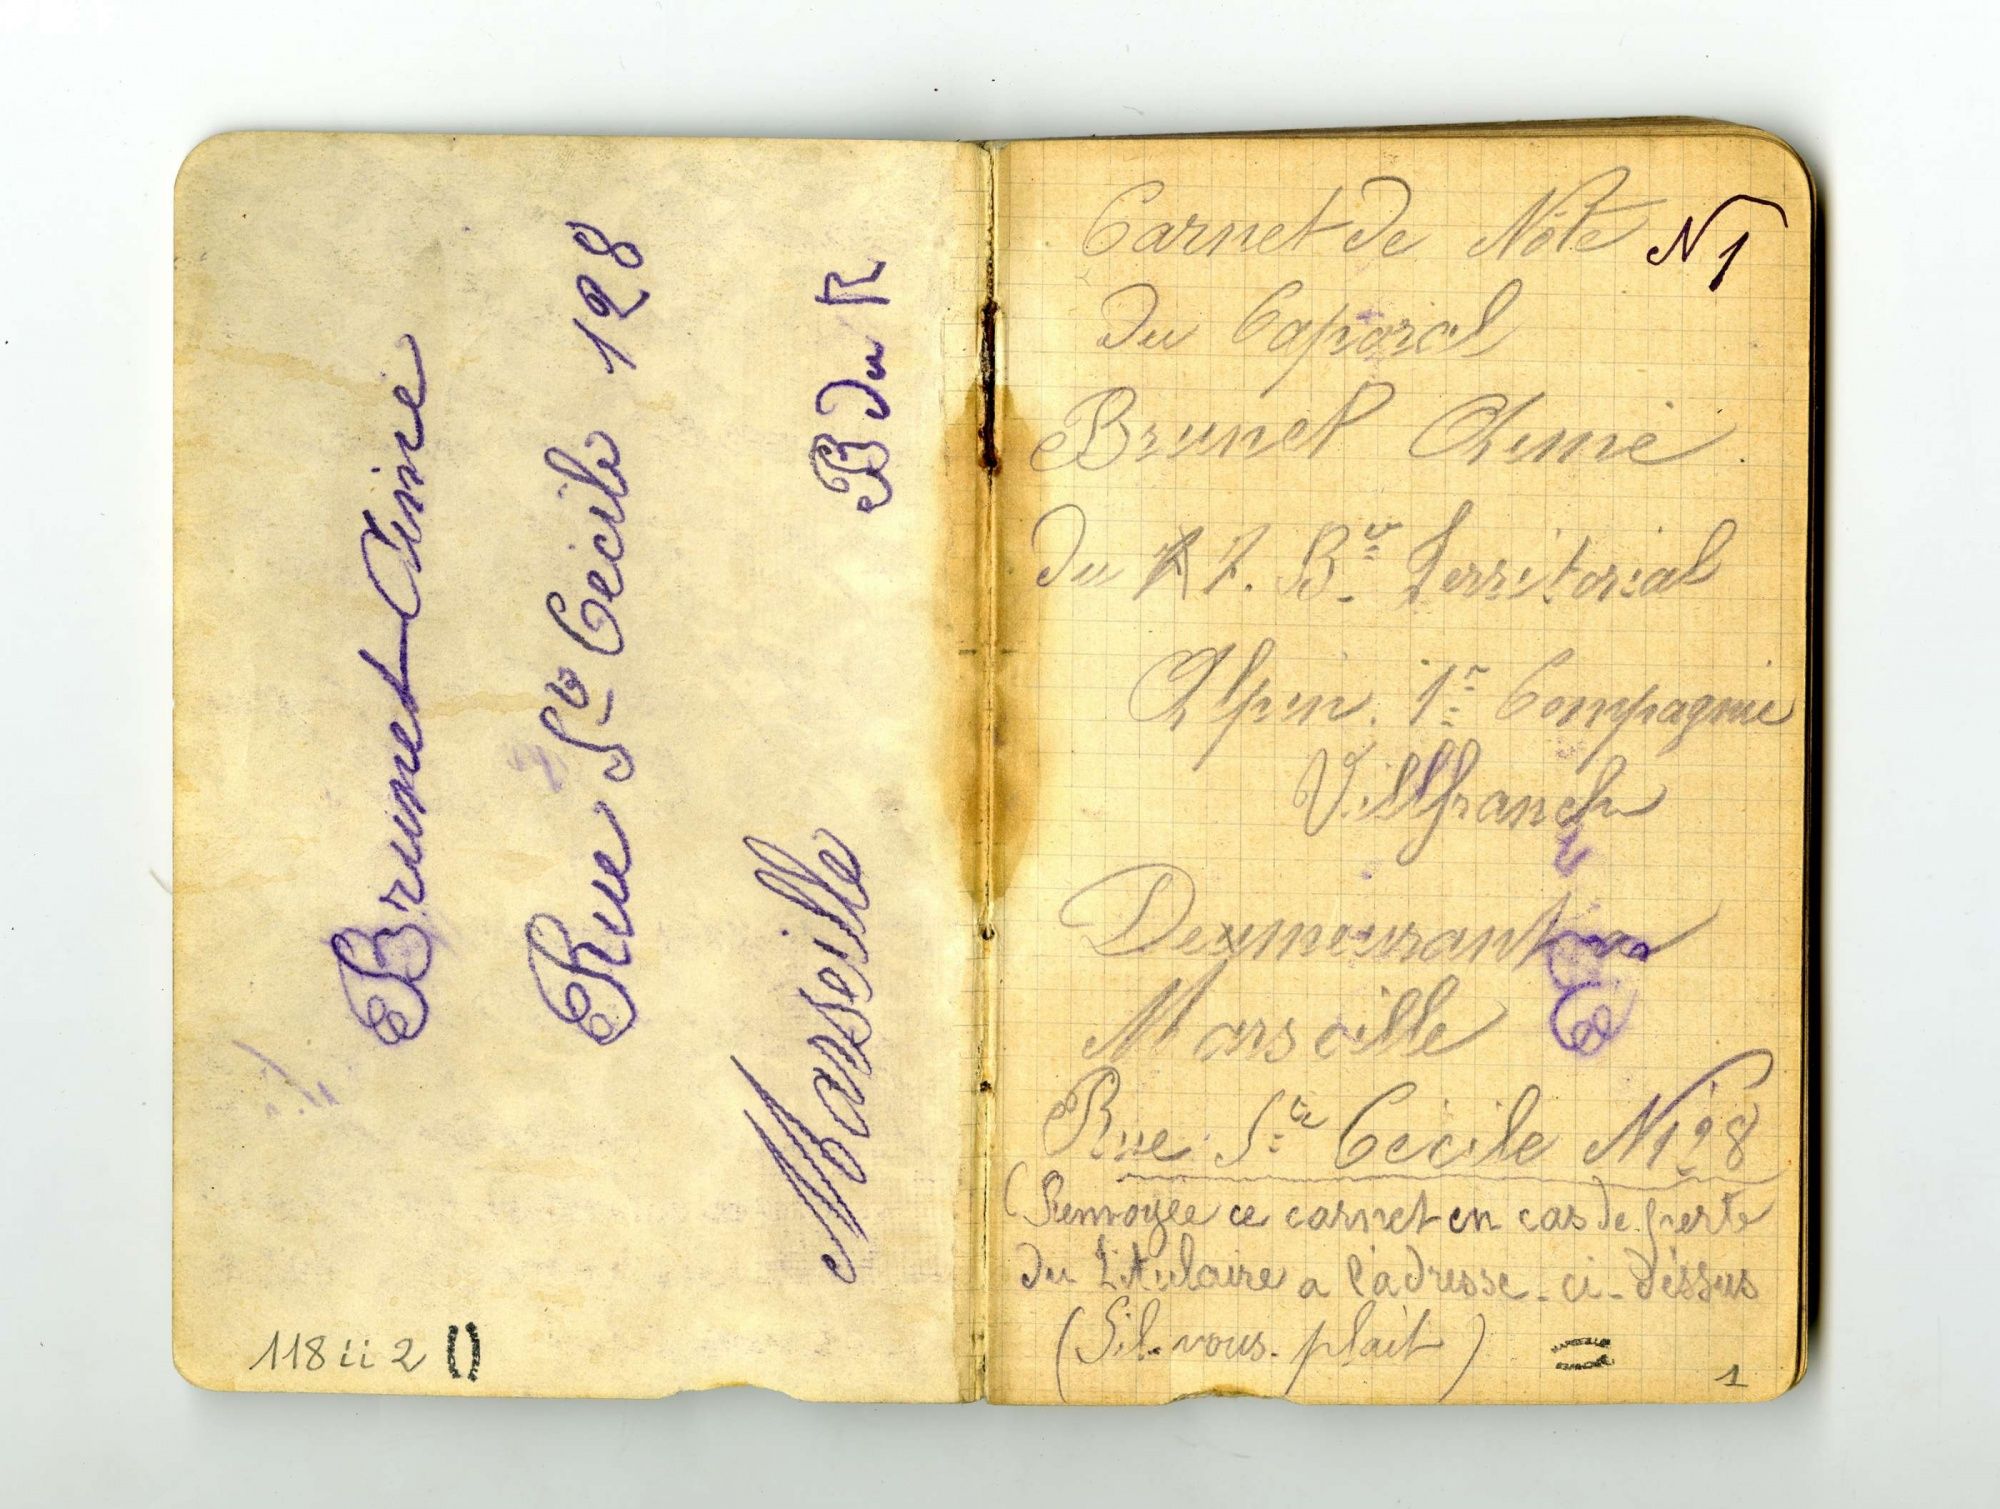 Brunet Aimé
Rue Ste Cécile 128
Marseille B du R
118 ii 2
Carnet de Note N 1
du Caporal
Brunet Aimé
du 7. Bn Territorial
Alpin. 1r Compagnie
Villfranche
Demeurant a
Marseille
Rue Ste Cécile N 128
(Renvoyée ce carnet en cas de perte
du Titulaire a l'adresse - ci - déssus
(S'il - vous - plait)
1